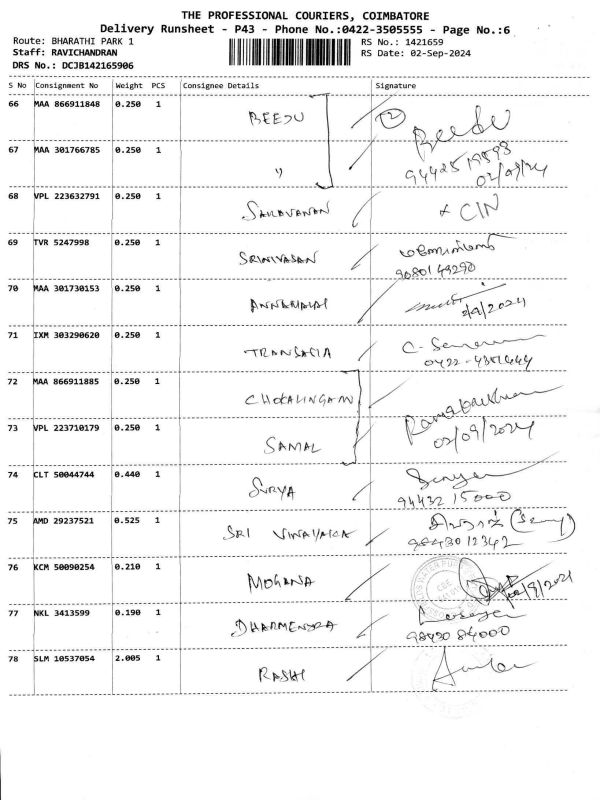 THE PROFESSIONAL COURIERS, COIMBATORE
Delivery Runsheet - P43 - Phone No.:0422-3505555 - Page No.:6
Route: BHARATHI PARK 1
RS No.: 1421659
Staff: RAVICHANDRAN
RS Date: 02-Sep-2024
DRS No.: DCJB142165906
S No Consignment No Weight PCS Consignee Details Signature
66 MAA 866911848 0.250 1 BEEJU 2 Beedu
67 MAA 301766785 0.250 1 " 02/09/24
68 VPL 223632791 0.250 1 SARAVANAN + CIN
69 TVR 5247998 0.250 1 SRINIVASAN 9080149290
70 MAA 301730153 0.250 1 ANNAMALAI 2/9/2024
71 IXM 303290620 0.250 1 TRANSASIA
72 MAA 866911885 0.250 1 CHOKALINGAM
73 VPL 223710179 0.250 1 SAMAL 02/09/2024
74 CLT 50044744 0.440 1 SURYA 94432 15000
75 AMD 29237521 0.525 1 SRI VINAYAKA 9843012342
76 KCM 50090254 0.210 1 MOGANA
77 NKL 3413599 0.190 1 DHARMENDRA 98430 84000
78 SLM 10537054 2.005 1 RASHI